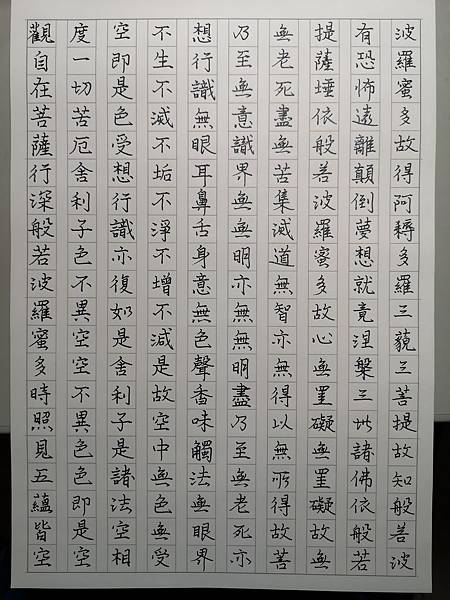 觀自在菩薩行深般若波羅蜜多時照見五蘊皆空
度一切苦厄舍利子色不異空空不異色色即是空
空即是色受想行識亦復如是舍利子是諸法空相
不生不滅不垢不淨不增不減是故空中無色無受
想行識無眼耳鼻舌身意無色聲香味觸法無眼界
乃至無意識界無無明亦無無明盡乃至無老死亦
無老死盡無苦集滅道無智亦無得以無所得故菩
提薩埵依般若波羅蜜多故心無罣礙無罣礙故無
有恐怖遠離顛倒夢想就竟涅槃三世諸佛依般若
波羅蜜多故得阿耨多羅三藐三菩提故知般若波